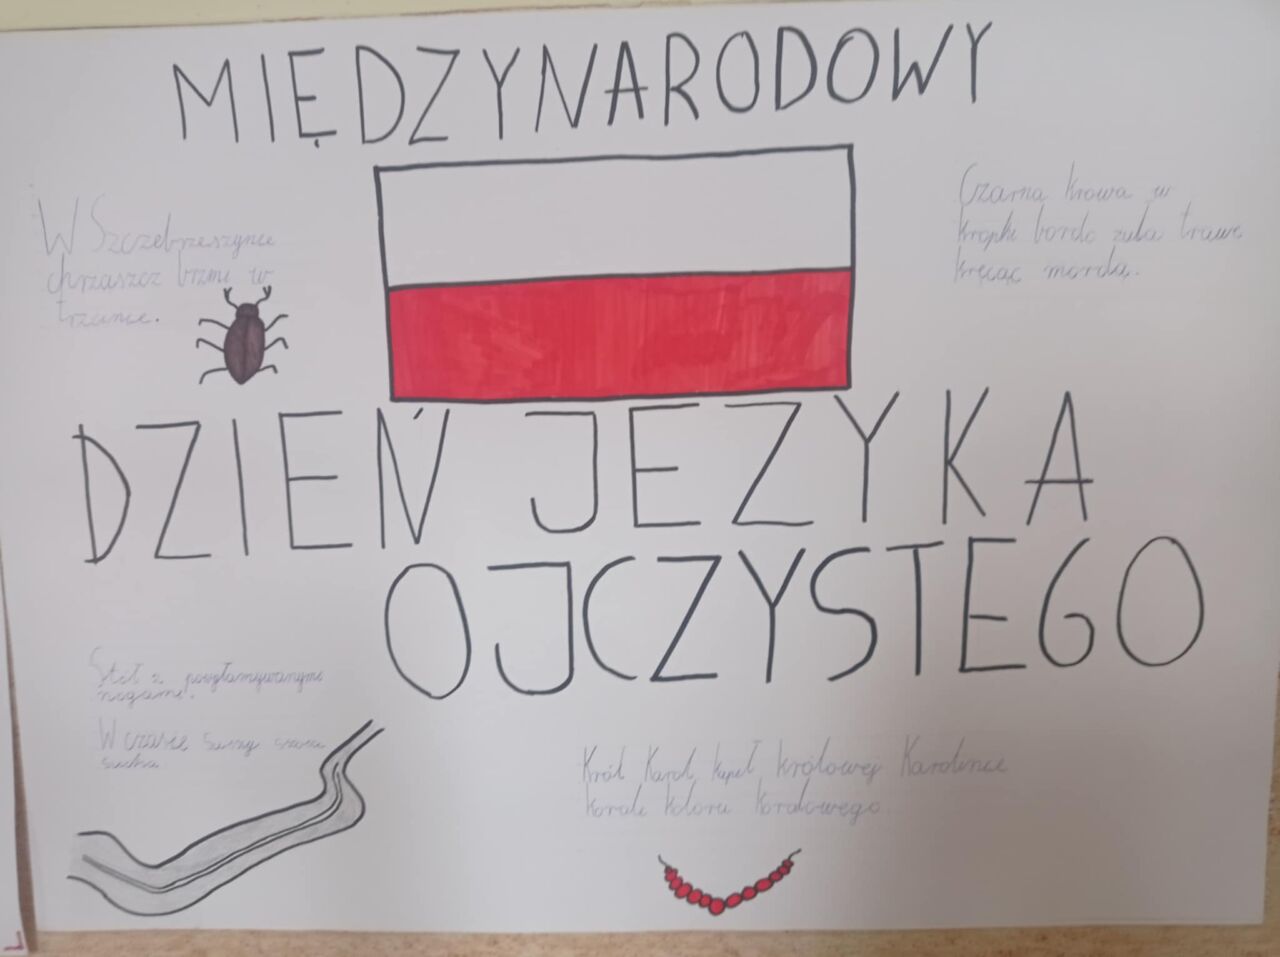 MIĘDZYNARODOWY
W Szczebrzeszynie
chrząszcz brzmi w
trzcinie.
Czarna krowa w
kropki bordo żuła trawę
kręcąc mordą.
DZIEŃ JEZYKA
OJCZYSTEGO
Stół z powyłamywanymi
nogami.
W czasie suszy szosa
sucha
Król Karol kupił królowej Karolinie
korale koloru koralowego.